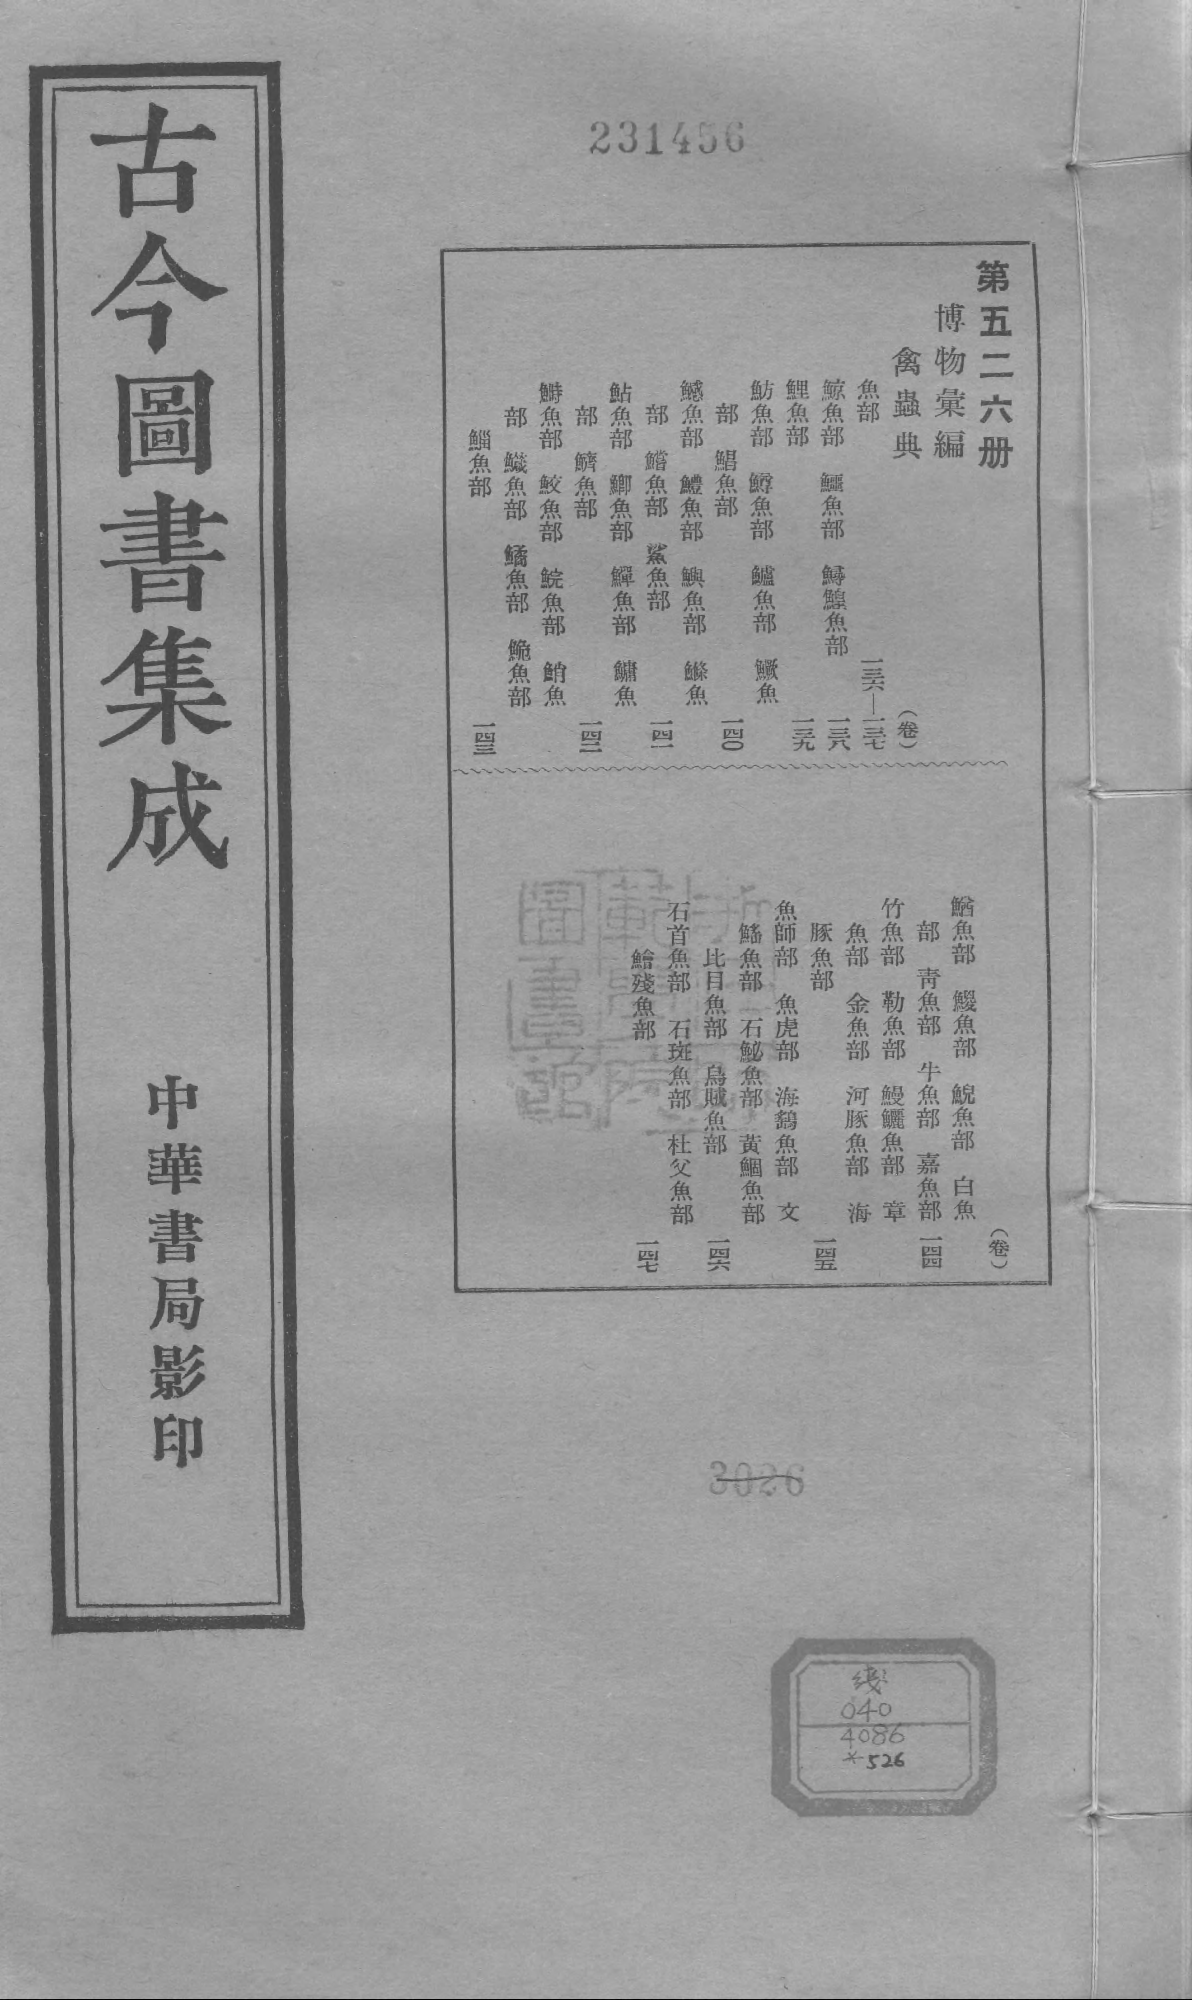 古今圖書集成
中華書局影印
231456
第五二六册
博物彙編
禽蟲典
（卷）
魚部 一三六—一三七
鯨魚部 鱷魚部 鱘鰉魚部 一三八
鯉魚部 一三九
魴魚部 鱒魚部 鱸魚部 鱖魚
部 鯧魚部 一四〇
鱤魚部 鱧魚部 鱮魚部 鰷魚
部 鰌魚部 鯊魚部 一四一
鮎魚部 鯽魚部 鱓魚部 鱅魚
部 鱭魚部 一四二
鰣魚部 鮫魚部 鯇魚部 鮹魚
部 鱵魚部 鱊魚部 鮠魚部
鯔魚部 一四三
（卷）
鰌魚部 鯼魚部 鯢魚部 白魚
部 靑魚部 牛魚部 嘉魚部 一四四
竹魚部 勒魚部 鰻鱺魚部 章
魚部 金魚部 河豚魚部 海
豚魚部 一四五
魚師部 魚虎部 海鷂魚部 文
鰩魚部 石鮅魚部 黃鯝魚部
比目魚部 烏賊魚部 一四六
石首魚部 石斑魚部 杜父魚部
鱠殘魚部 一四七
圖書館
3026
线
040
4086
*526